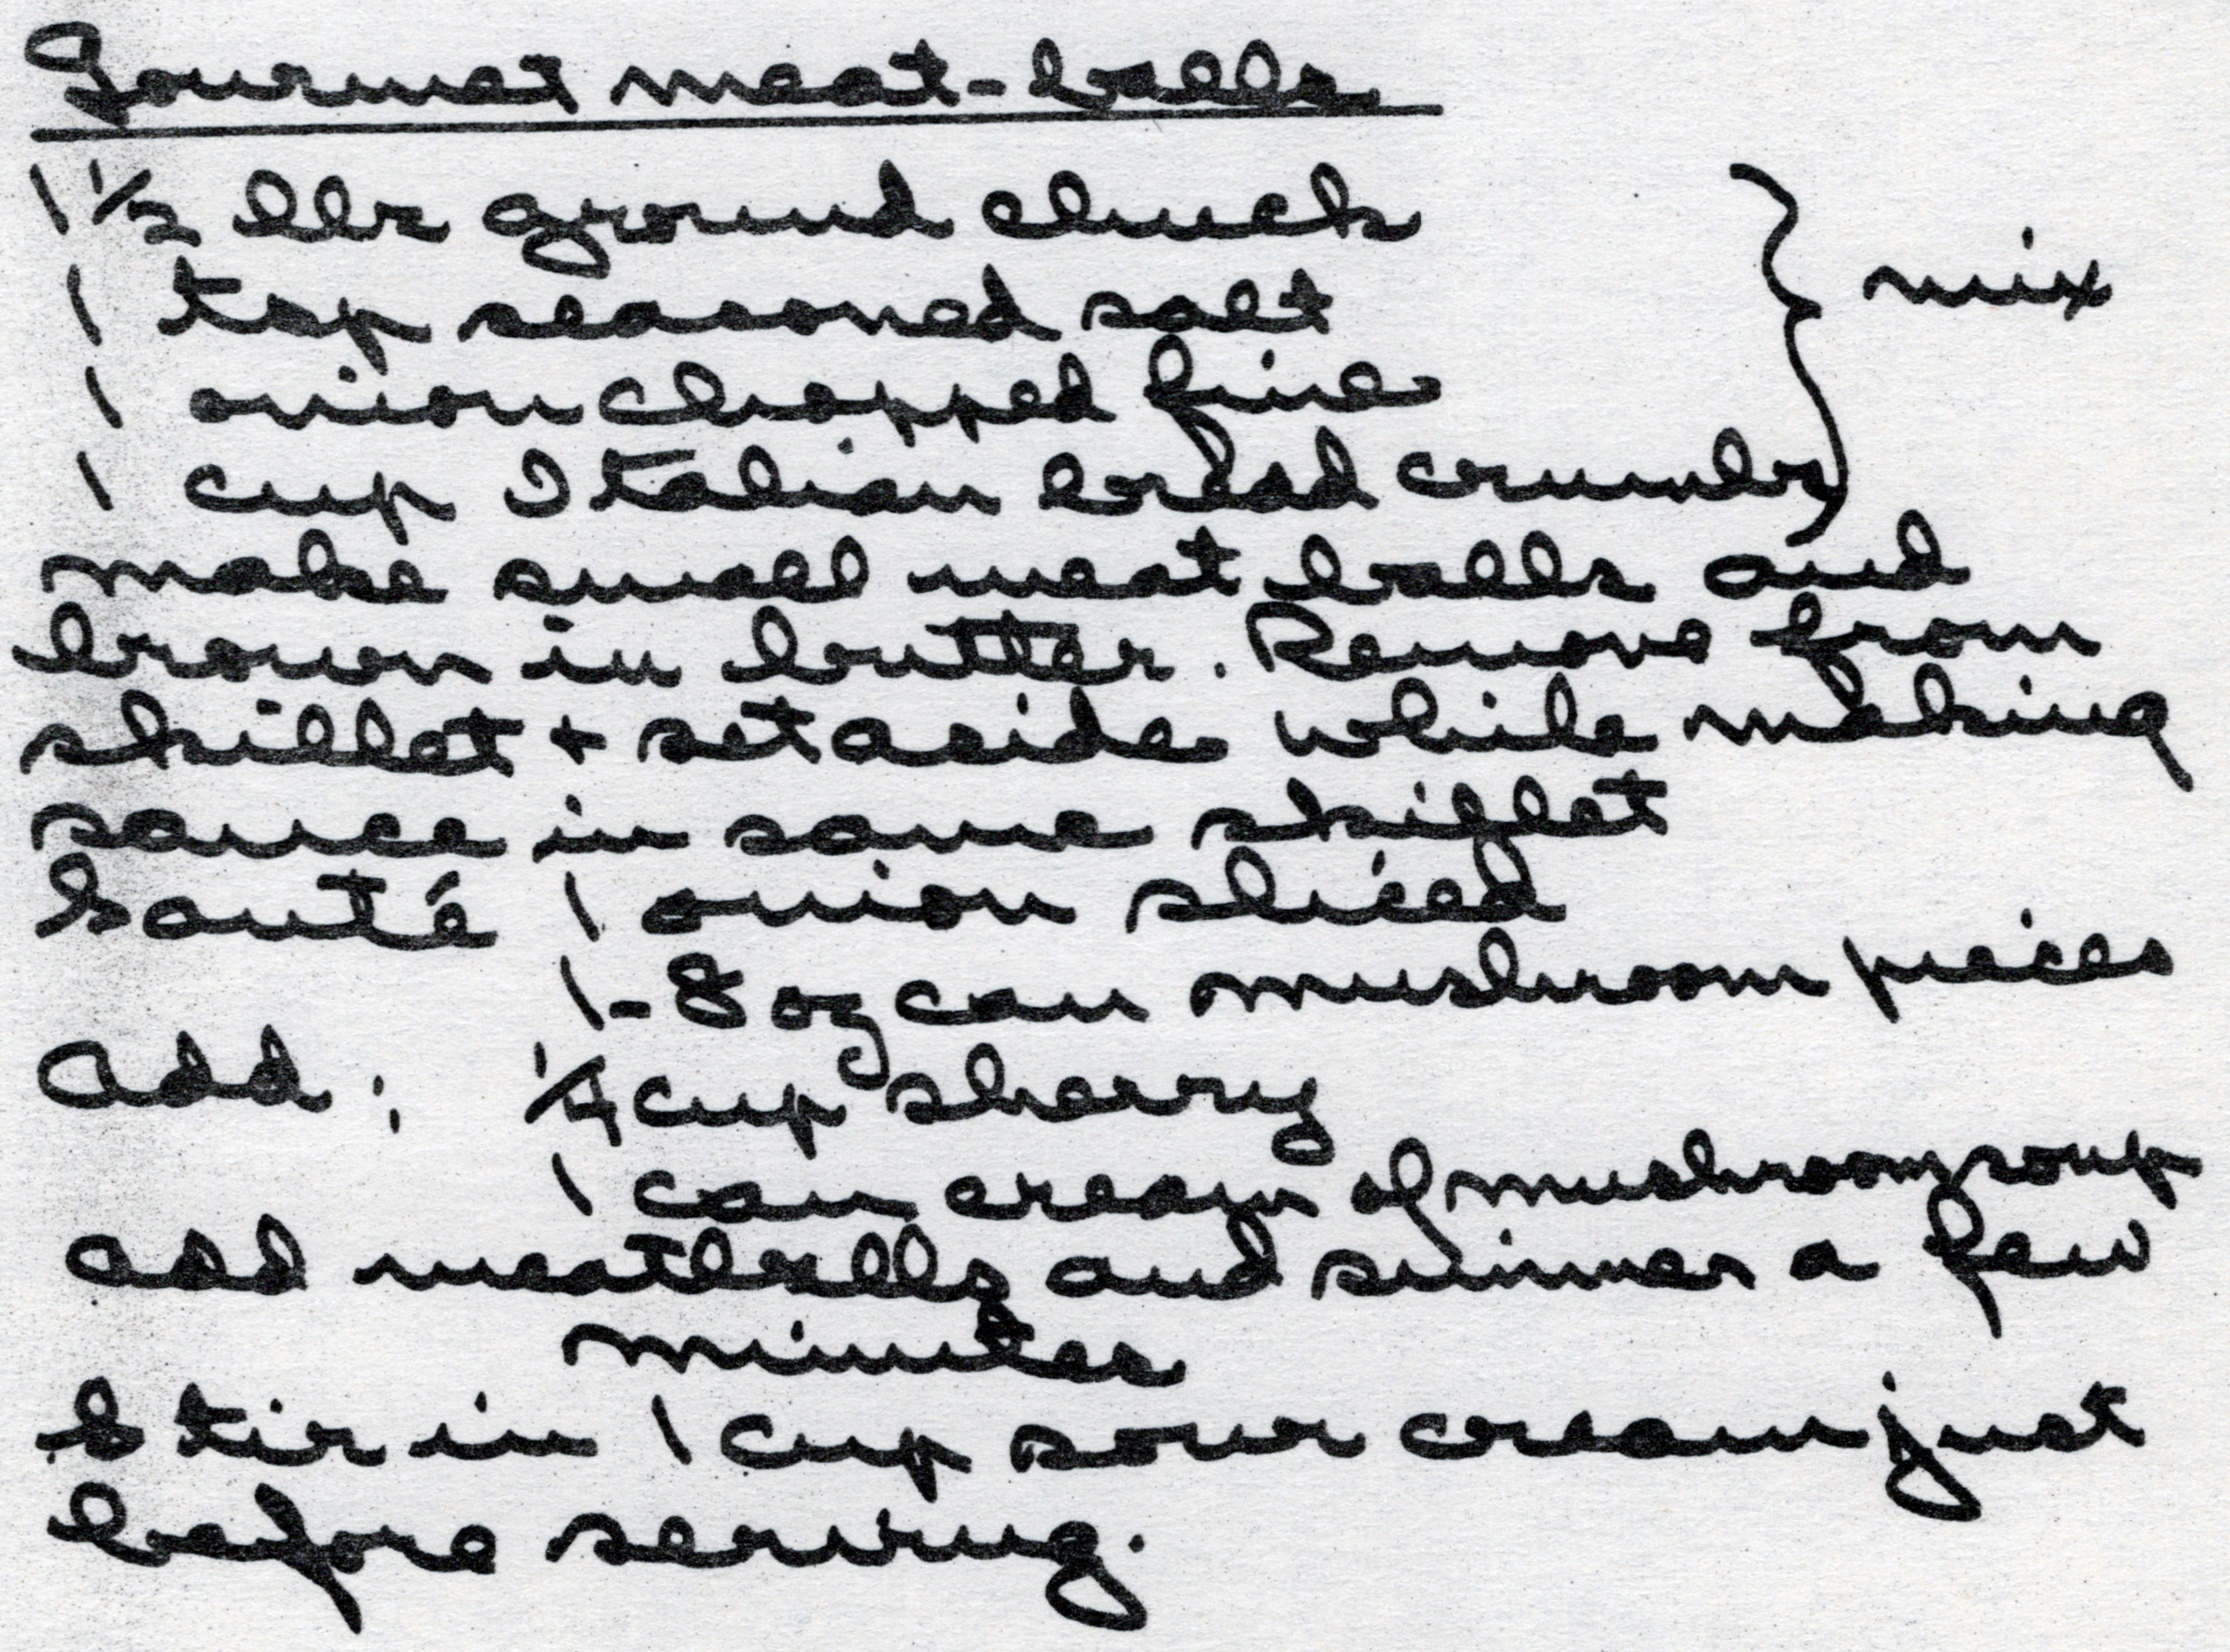 Gourmet meat-balls
1 1/2 lbs ground chuck
1 tsp seasoned salt
1 onion chopped fine
1 cup Italian bread crumbs } mix
make small meat balls and
brown in butter. Remove from
skillet + set aside while making
sauce in same skillet
Sauté 1 onion sliced
1-8 oz can mushroom pieces
add: 1/4 cup sherry
1 can cream of mushroom soup
add meatballs and simmer a few
minutes
Stir in 1 cup sour cream just
before serving.